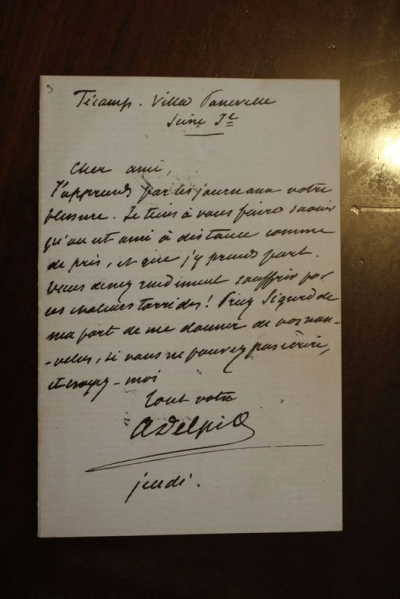 Fécamp. Villa
Seine Ire
Cher ami,
J'apprends par les journaux votre
blessure. Je tiens à vous faire savoir
qu'on est ami à distance comme
de près, et que j'y prends part.
Vous devez rudement souffrir par
ces chaleurs torrides! Priez Sigurd de
ma part de me donner de vos nou-
-velles, si vous ne pouvez pas écrire,
et croyez-moi
tout votre
jeudi.